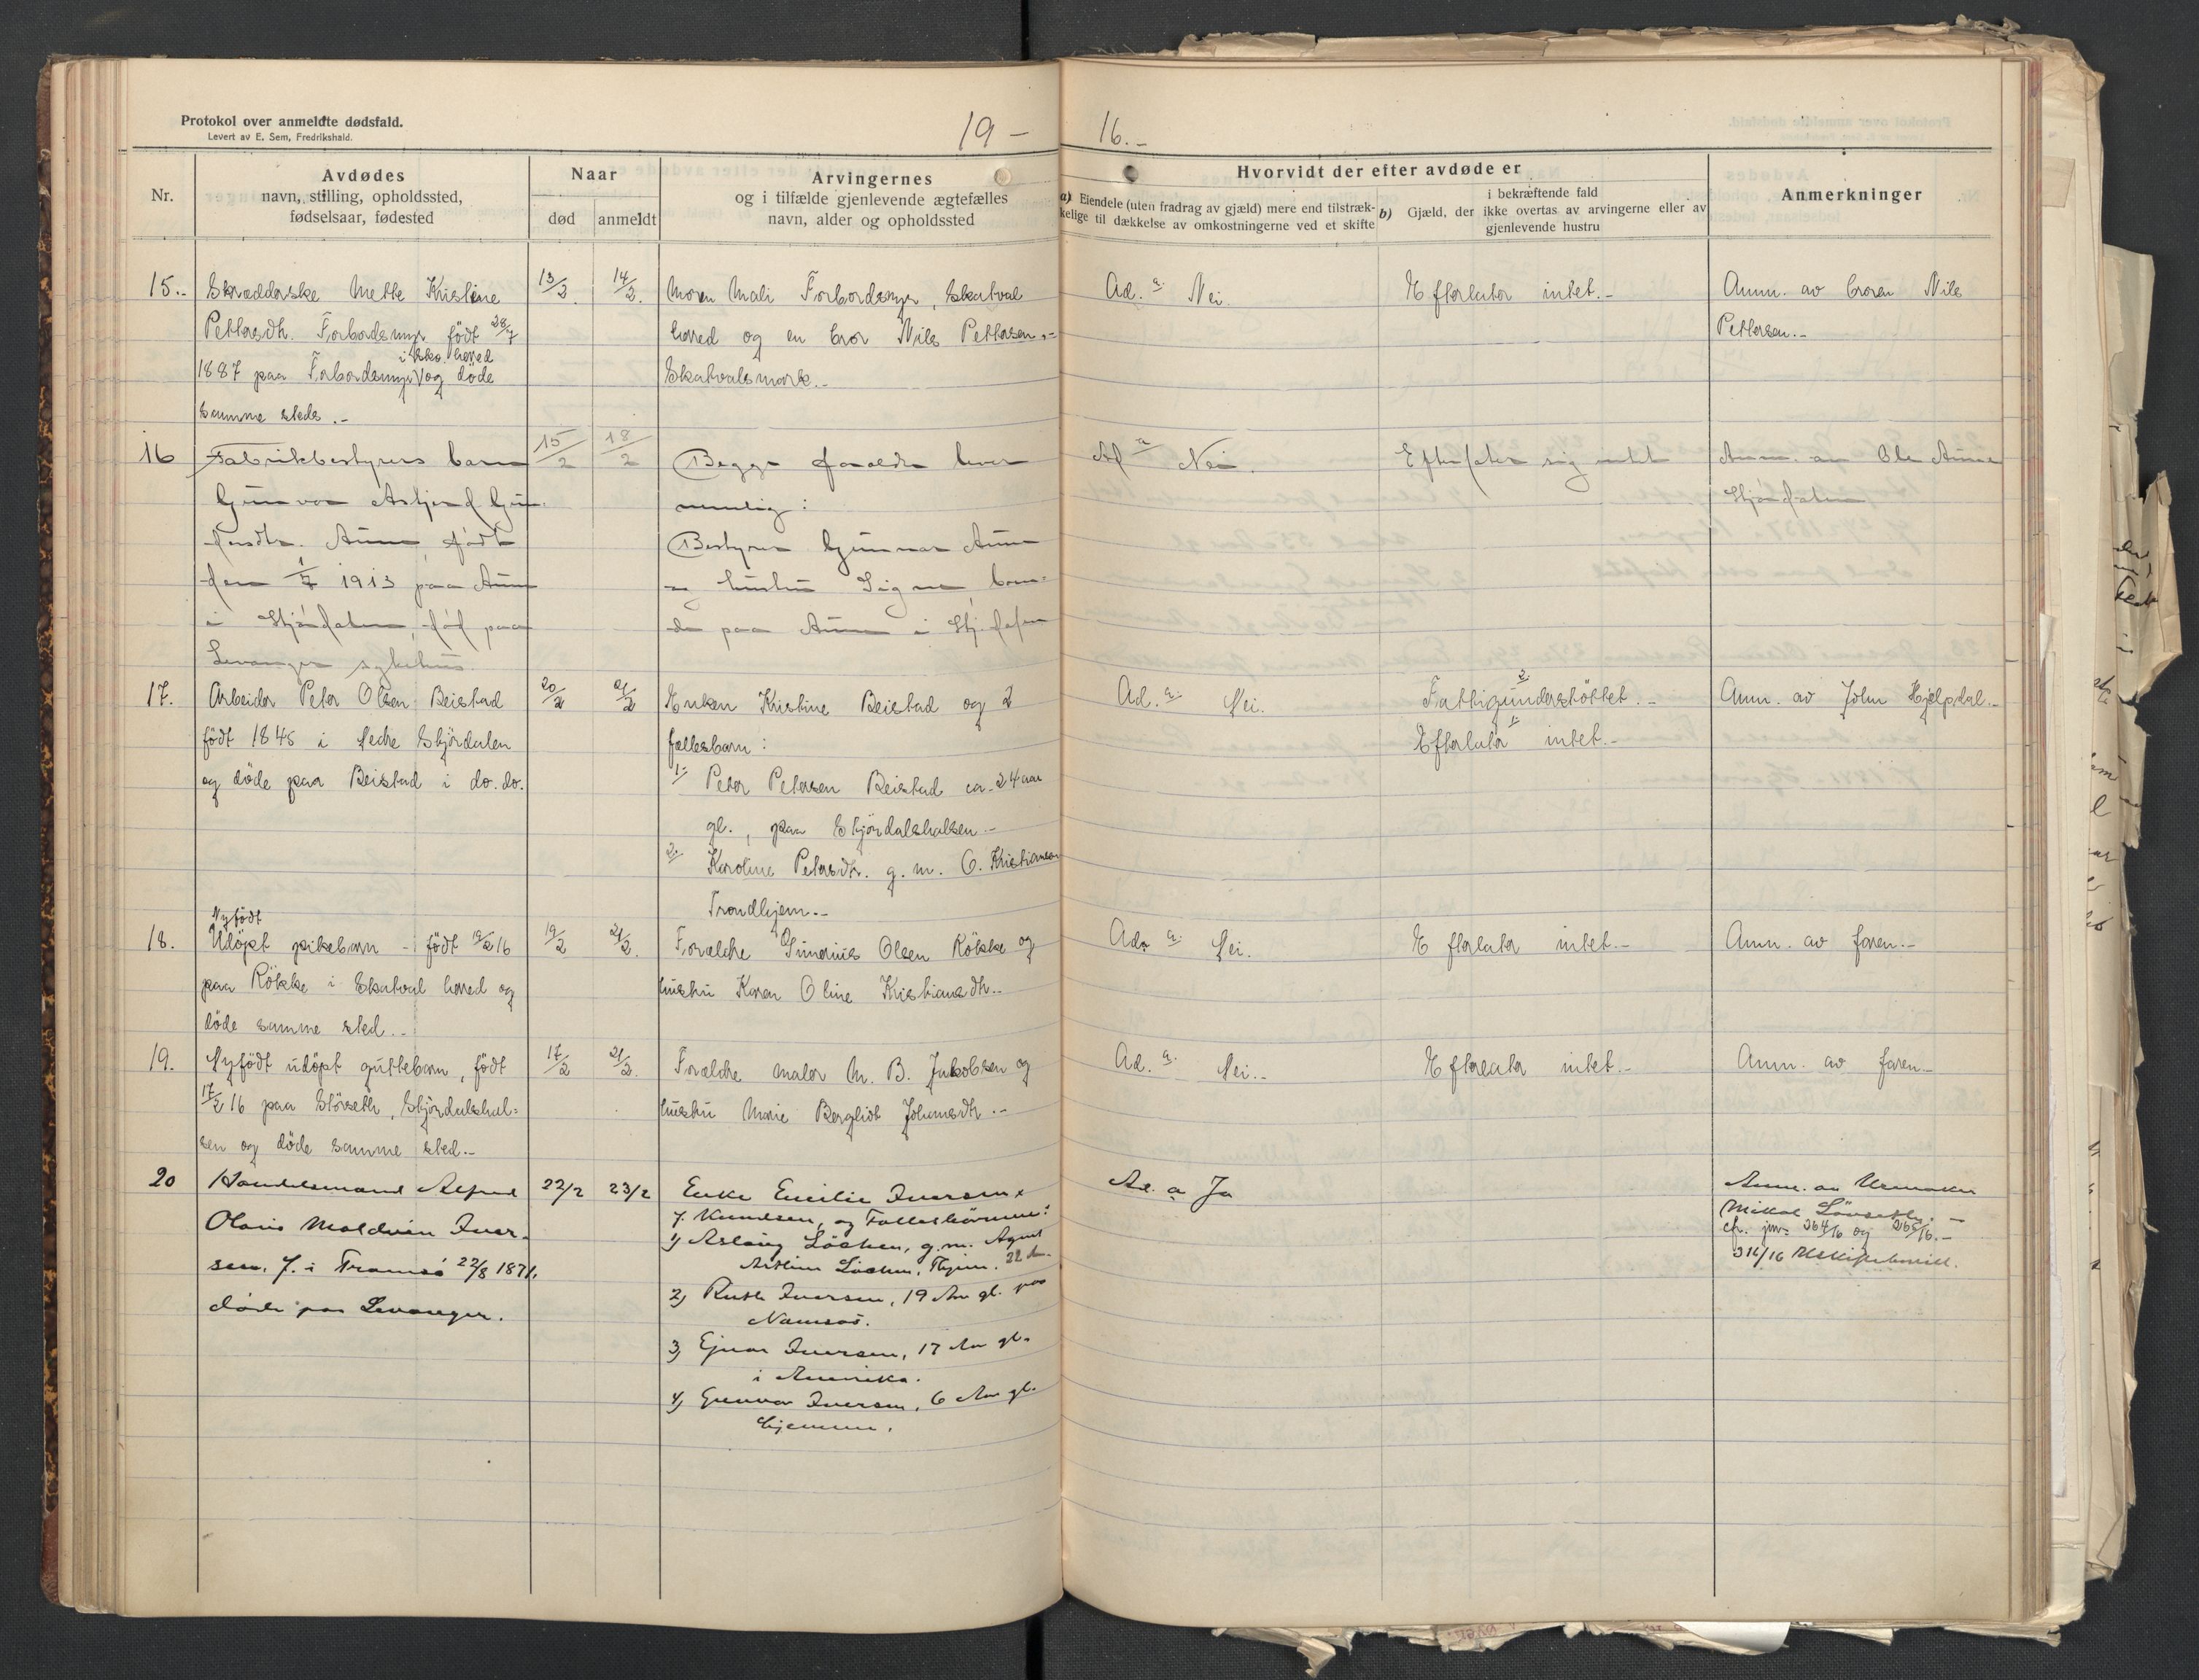 Protokol over anmeldte dødsfald.
Levert av E. Sem, Fredrikshald.
19 – 16.–
Nr.
Avdødes
navn, stilling, opholdssted,
fødselsaar, fødested
Naar
død
anmeldt
Arvingernes
og i tilfælde gjenlevende ægtefælles
navn, alder og opholdssted
Hvorvidt der efter avdøde er
a) Eiendele (uten fradrag av gjæld) mere end tilstræk-
kelige til dækkelse av omkostningerne ved et skifte
b) Gjæld, der i bekræftende fald ikke overtas av arvingerne eller av
gjenlevende hustru
Anmerkninger
15.
Skrædderske Mette Kristine
Pettersdtr. Forbordsmyr født 28/7
i Ska. herred
1887 paa Forbordsmyr og döde
samme steds.–
13/2.
14/2.
Moren Mali Forbordsmyr, Skatval
herred og en bror Nils Pettersen,–
Skatvalsmark.–
Ad. a. Nei.
Efterlater intet.–
Anm. av broren Nils
Pettersen.–
16
Fabrikbestyrers barn
Gunvor Asbjørg Gun-
Aune, født
den 1/7 1913 paa Aune
i Stjørdalen, død paa
Levanger sykehus
15/2
18/2
Begge forældre lever
nemlig:
Bestyrer Gunnar Aune
og hustru Signe, boen-
de paa Aune i Stj.dalen
Ad a Nei.
Efterlater sig intet
Anm. av Ole Aune
Stjørdalen
17.
Arbeider Peter Olsen Beistad
født 1845 i Nedre Stjördalen
og döde paa Beistad i do. do.
20/2
21/2
Enken Kristine Beistad og 2
fællesbarn:
1. Peter Petersen Beistad ca. 24 aar
gl., paa Stjördalshalsen.–
2. Karoline Petersdtr. g. m. O. Kristiansen
Trondhjem.–
Ad. a. Nei.
2. Fattigunderstöttet.–
1. Efterlater intet.–
Anm. av John Hjelpdal.–
18.
Nyfödt
Udöpt pikebarn – født 19/2 16
paa Rökke i Skatval herred og
döde samme sted.–
19/2
21/2.
Forældre Gunerius Olsen Rökke og
hustru Karen Oline Kristiansdtr.–
Ad. a. Nei.
Efterlater intet.–
Anm. av faren.–
19.
Nyfødt udöpt guttebarn, født
17/2 16 paa Störseth, Stjördalshal-
sen og döde samme sted.–
17/2
21/2.
Forældre maler M. B. Jakobsen og
hustru Marie Bergliot Johansdtr.–
Ad. a. Nei.–
Efterlater intet.–
Anm. av faren.–
20
Handelsmand Alfred
Olaus Moldvin Iver-
sen, f. i Tromsö 22/8 1871.
döde paa Levanger.
22/2
23/2
Enke Emilie Iversen
f. Knudsen, og Fællesbörnene:
1) Aslaug Löchen, g.m. Agent
Löchen, Thjem. 22 Aar.
2) Ruth Iversen, 19 Aar gl. paa
Namsos.
3) Ejnar Iversen, 17 Aar gl.
i Amerika.
4) Gunvor Iversen, 6 Aar gl.
hjemme.
Ad. a Ja
Anm. av Urmaker
Mikal Lövseth.–
cfr. jnr. 264/16 og 265/16.–
311/16